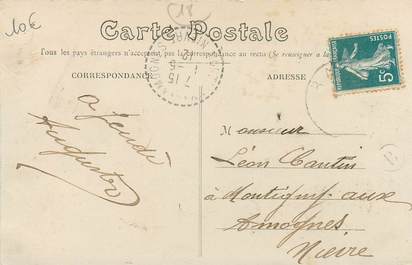 10€
Carte Postale
Tous les pays étrangers n'acceptent pas la correspondance au recto (Se renseigner à
CORRESPONDANCE
ADRESSE
POSTES
5c
à jeudi
Augusta
Monsieur
Léon Cantin
à Montigny aux
Amognes
Nièvre